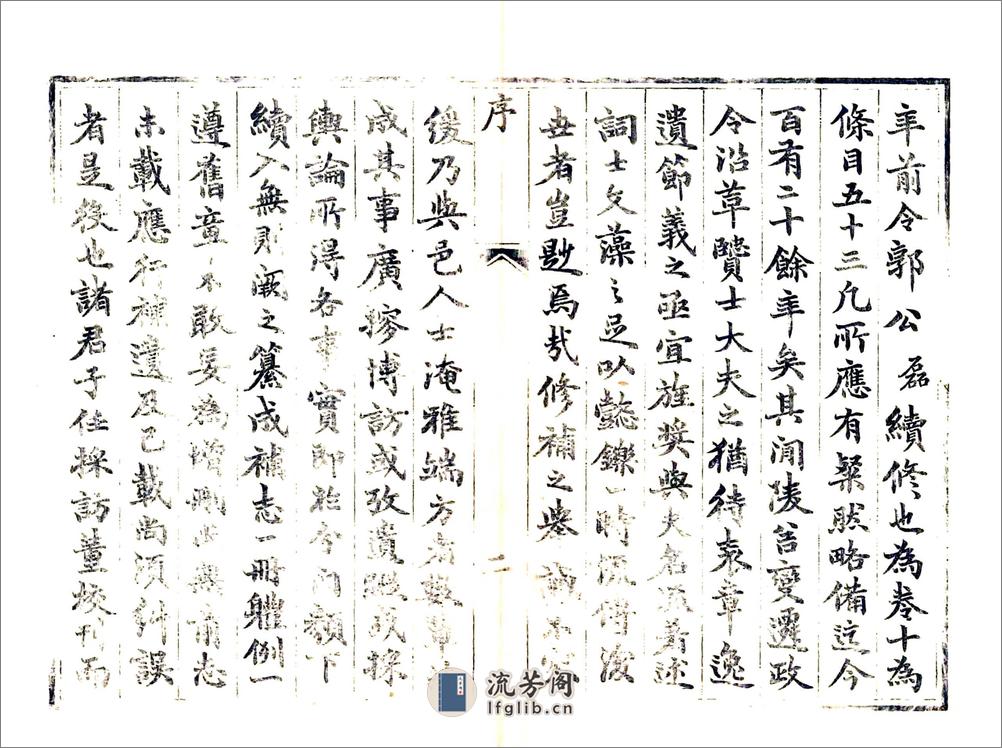 年前令郭公磊續修也為卷十為
條目五十三凡所應有粲然略備迄今
百有二十餘年矣其間陵谷變遷政
令沿革賢士大夫之猶待表章逸
遺節義之亟宜旌奬與夫名流著述
詞士文藻之足以懿鑠一時流傳後
世者豈尠焉哉修補之舉誠不容
序
二
緩乃與邑人士淹雅端方者數輩
成其事廣搜博訪或攷遺蹤或採
輿論所得各事實即於今門類下
續入無則闕之纂成補志一冊體例一
遵舊章不敢妄為增刪無前志
未載應行補遺及已載尚須糾誤
者是役也諸君子任採訪董校刊而
流芳阁
lfglib.cn